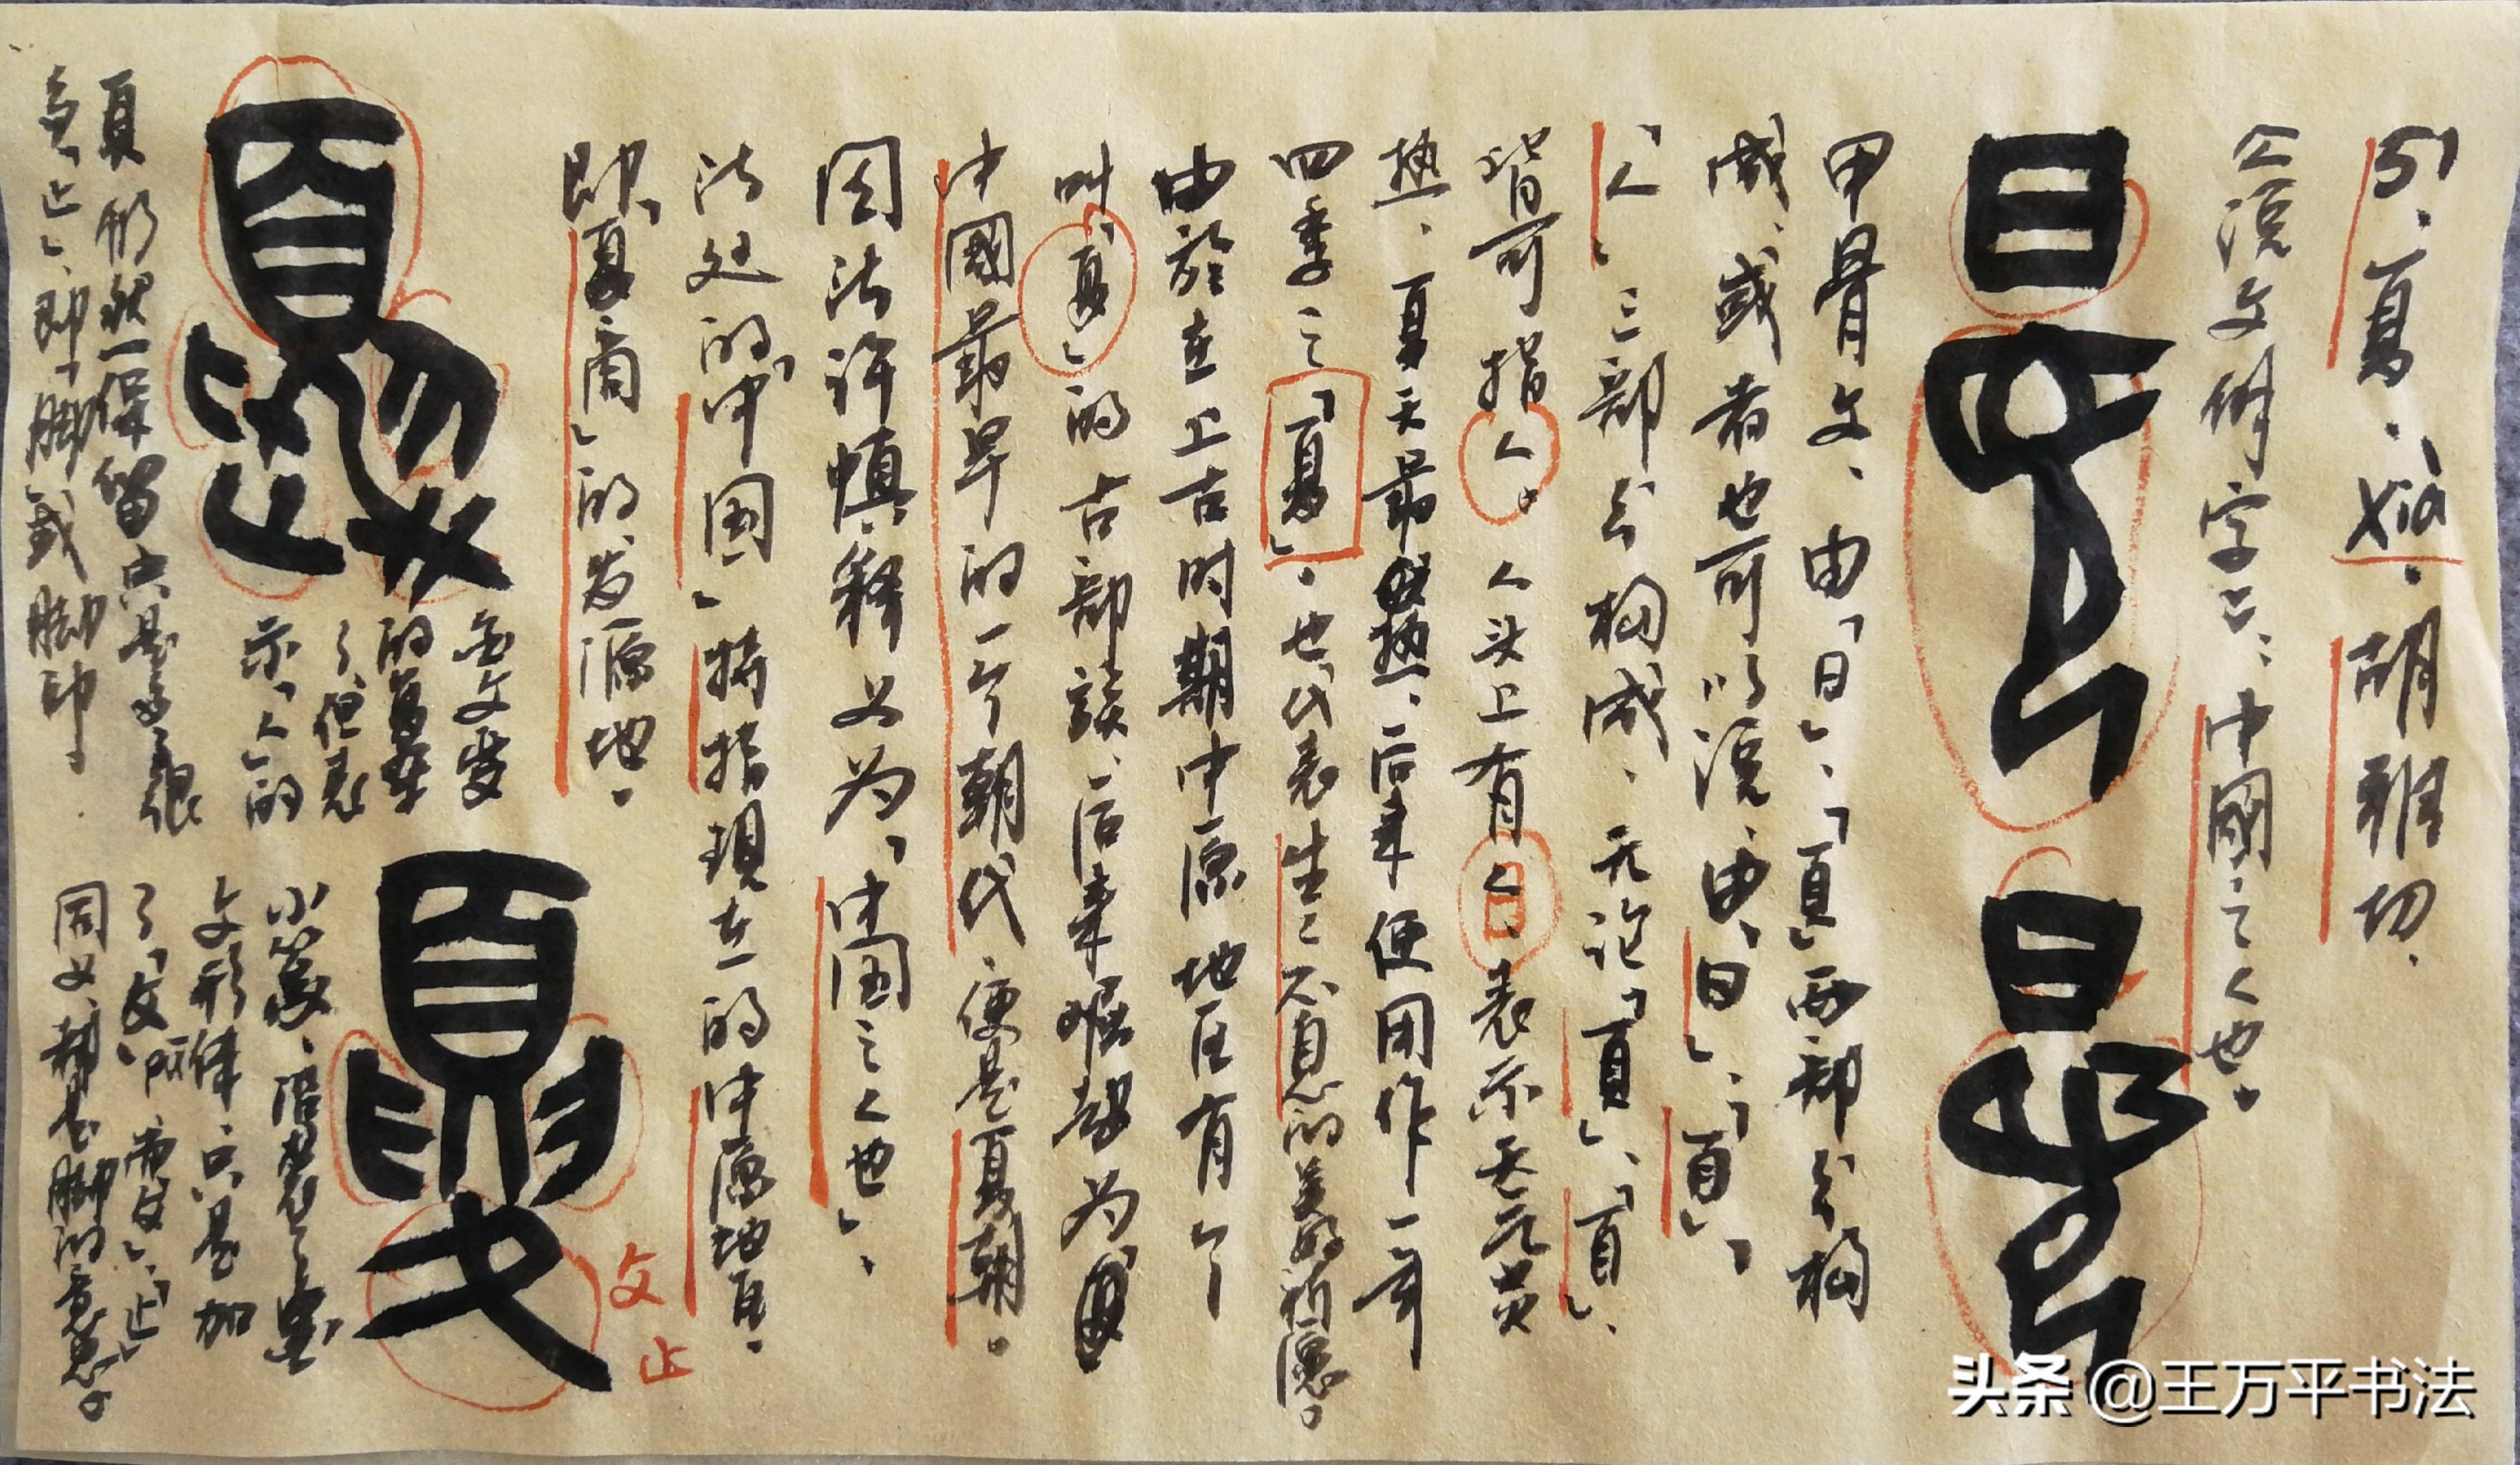 51、夏、xià、胡雅切、
《说文解字》：中國之人也。
甲骨文、由「日」、「頁」两部分构
成、或者也可以说、由「日」、「百」、
「人」三部分构成、无论「頁」、「百」、
皆可指人。人头上有日、表示天气炎
热、夏天最热、后来便用作一年
四季之「夏」。也代表生生不息的美好祈愿。
由於在上古时期中原地区有个
叫「夏」的古部族、后来崛起为
中國最早的一个朝代、便是夏朝。
因法许慎释义为、「中国之人也」、
法处的「中国」特指现在的中原地区。
即「夏商」的发源地。
金文变
的复杂
了、但表
示「人」的
頁形依一保留只是手很
「止」、即「脚」或脚印。
小篆、沿袭了金
文形体、只是加
了「夊」、而「夊」、「止」
同义、都是脚的意思。
夊
止
头条 @王万平书法